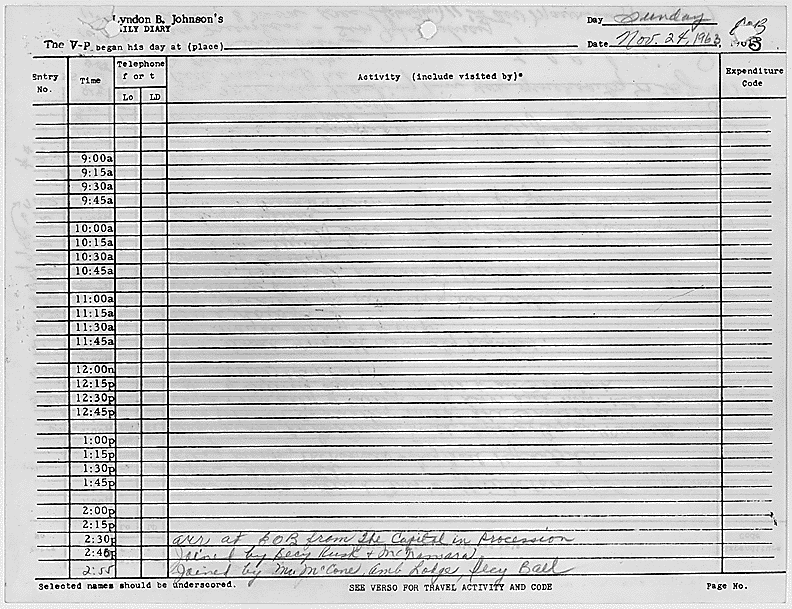 Lyndon B. Johnson's
ILY DIARY
Day Sunday
The V-P began his day at (place)
Date Nov. 24, 1963
Entry No. Time Telephone f or t Lo LD Activity (include visited by)* Expenditure Code
9:00a
9:15a
9:30a
9:45a
10:00a
10:15a
10:30a
10:45a
11:00a
11:15a
11:30a
11:45a
12:00n
12:15p
12:30p
12:45p
1:00p
1:15p
1:30p
1:45p
2:00p
2:15p
2:30p arr. at EOB from the Capitol in Procession
2:45p Joined by Secy Rusk + McNamara
2:55 Joined by Mr. McCone, Amb Lodge, Secy Ball
Selected names should be underscored. SEE VERSO FOR TRAVEL ACTIVITY AND CODE Page No.